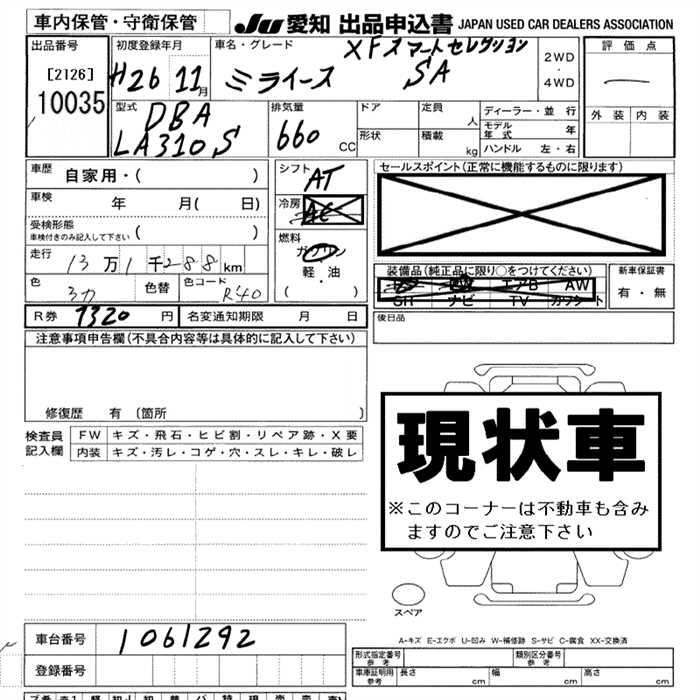 車内保管・守衛保管
JU 愛知 出品申込書 JAPAN USED CAR DEALERS ASSOCIATION
出品番号
[2126]
10035
初度登録年月
H26 11月
車名・グレード
XFスマートセレクション
ミライース SA
2WD
・
4WD
評価点
外装 内装
型式
DBA
LA310S
排気量
660 CC
ドア
形状
定員 人
積載 kg
ディーラー・並行
モデル年式 年
ハンドル 左・右
車歴 自家用・( )
車検 年 月( 日)
受検形態
車検付きのみ記入して下さい ( )
走行 13万1千288km
色 ミカ 色替 色コード R40
シフト AT
冷房 AC
燃料
ガソリン
軽・油
( )
セールスポイント(正常に機能するものに限ります)
装備品(純正品に限り○をつけてください)
エアB AW
SH ナビ TV カワシート
新車保証書
有・無
R券 7320 円 名変通知期限 月 日
後日品
注意事項申告欄(不具合内容等は具体的に記入して下さい)
修復歴 有 〔箇所 〕
検査員
記入欄
FW キズ・飛石・ヒビ割・リペア跡・X要
内装 キズ・汚レ・コゲ・穴・スレ・キレ・破レ
現状車
※このコーナーは不動車も含み
ますのでご注意下さい
スペア
A-キズ E-エクボ U-凹み W-補修跡 S-サビ C-腐食 XX-交換済
車台番号 1061292
登録番号
形式指定番号
参考
類別区分番号
参考
車庫証明用
参考
長さ cm 幅 cm 高さ cm